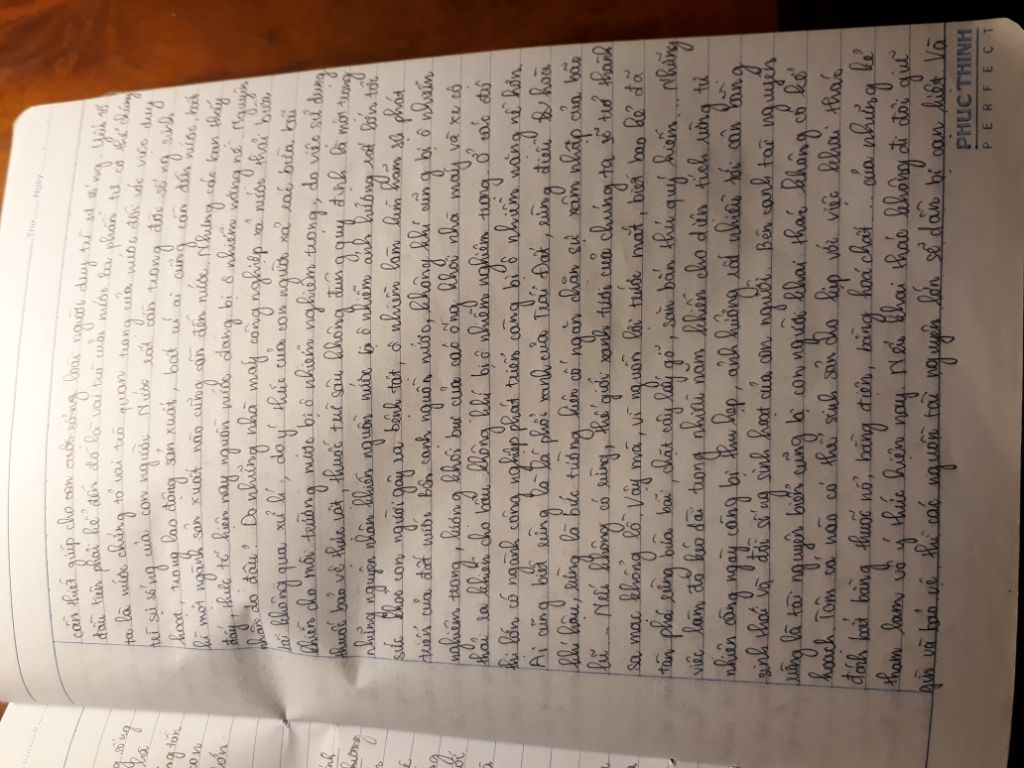 Thứ ...... Ngày ......
cần thiết giúp cho con cuộc sống loài người duy trì và sống. Yếu tố
đầu tiên phải kể đến đó là vai trò của nước là phần tử có thể dùng
ta là nước chứng tỏ vai trò quan trọng của nước đối với việc duy
trì sự sống của con người. Nước rất cần trong đời sống sinh
hoạt, trong lao động sản xuất, bất cứ ai cũng cần đến nước bất
kì một ngành sản xuất nào cũng cần đến nước. Nhưng các bạn thấy
đấy, thực tế hiện nay nguồn nước đang bị ô nhiễm nặng nề. Nguyên
nhân do đâu? Do những nhà máy công nghiệp xả nước thải bừa
bãi không qua xử lí, do ý thức của con người xả rác bừa bãi
khiến cho môi trường nước bị ô nhiễm nghiêm trọng, do viên sử dụng
thuốc bảo vệ thực vật, thuốc trừ sâu không đúng quy định là một trong
những nguyên nhân khiến nguồn nước bị ô nhiễm ảnh hưởng rất lớn tới
sức khỏe con người gây ra bệnh tật, ô nhiễm làm kìm hãm sự phát
triển của đất nước. Bên cạnh nguồn nước, không khí cũng bị ô nhiễm
nghiêm trọng, luồng khói bụi của các ống khói nhà máy và xe cộ
thải ra khiến cho bầu không khí bị ô nhiễm nghiêm trọng, ở các đô
thị lớn có ngành công nghiệp phát triển càng bị ô nhiễm nặng nề hơn.
Ai cũng biết rừng là lá phổi xanh của Trái Đất, rừng điều hoà
khí hậu, rừng là bức tường kiên cố ngăn chặn sự xâm nhập của bão
lũ ... Nếu không có rừng, thế giới xanh tươi của chúng ta sẽ trở thành
sa mạc khổng lồ. Vậy mà, vì nguồn lợi trước mắt, biết bao kẻ đã
tàn phá rừng bừa bãi, chặt cây lấy gỗ, săn bắn thú quý hiếm ... Những
việc làm đó kéo dài trong nhiều năm khiến cho diện tích rừng tự
nhiên càng ngày càng bị thu hẹp, ảnh hưởng rất nhiều tới cân bằng
sinh thái và đời sống sinh hoạt của con người. Bên cạnh tài nguyên
rừng là tài nguyên biển cũng bị con người khai thác không có kế
hoạch. Tôm cá nào có thể sinh sản cho kịp với việc khai thác
đánh bắt bằng thuốc nổ, bằng điện, bằng hoá chất ... của những kẻ
tham lam vô ý thức hiện nay. Nếu khai thác không đi đôi giữ
gìn và bảo vệ thì các nguồn tài nguyên lớn sẽ dần bị cạn kiệt. Và
PHÚC THỊNH
PERFECT